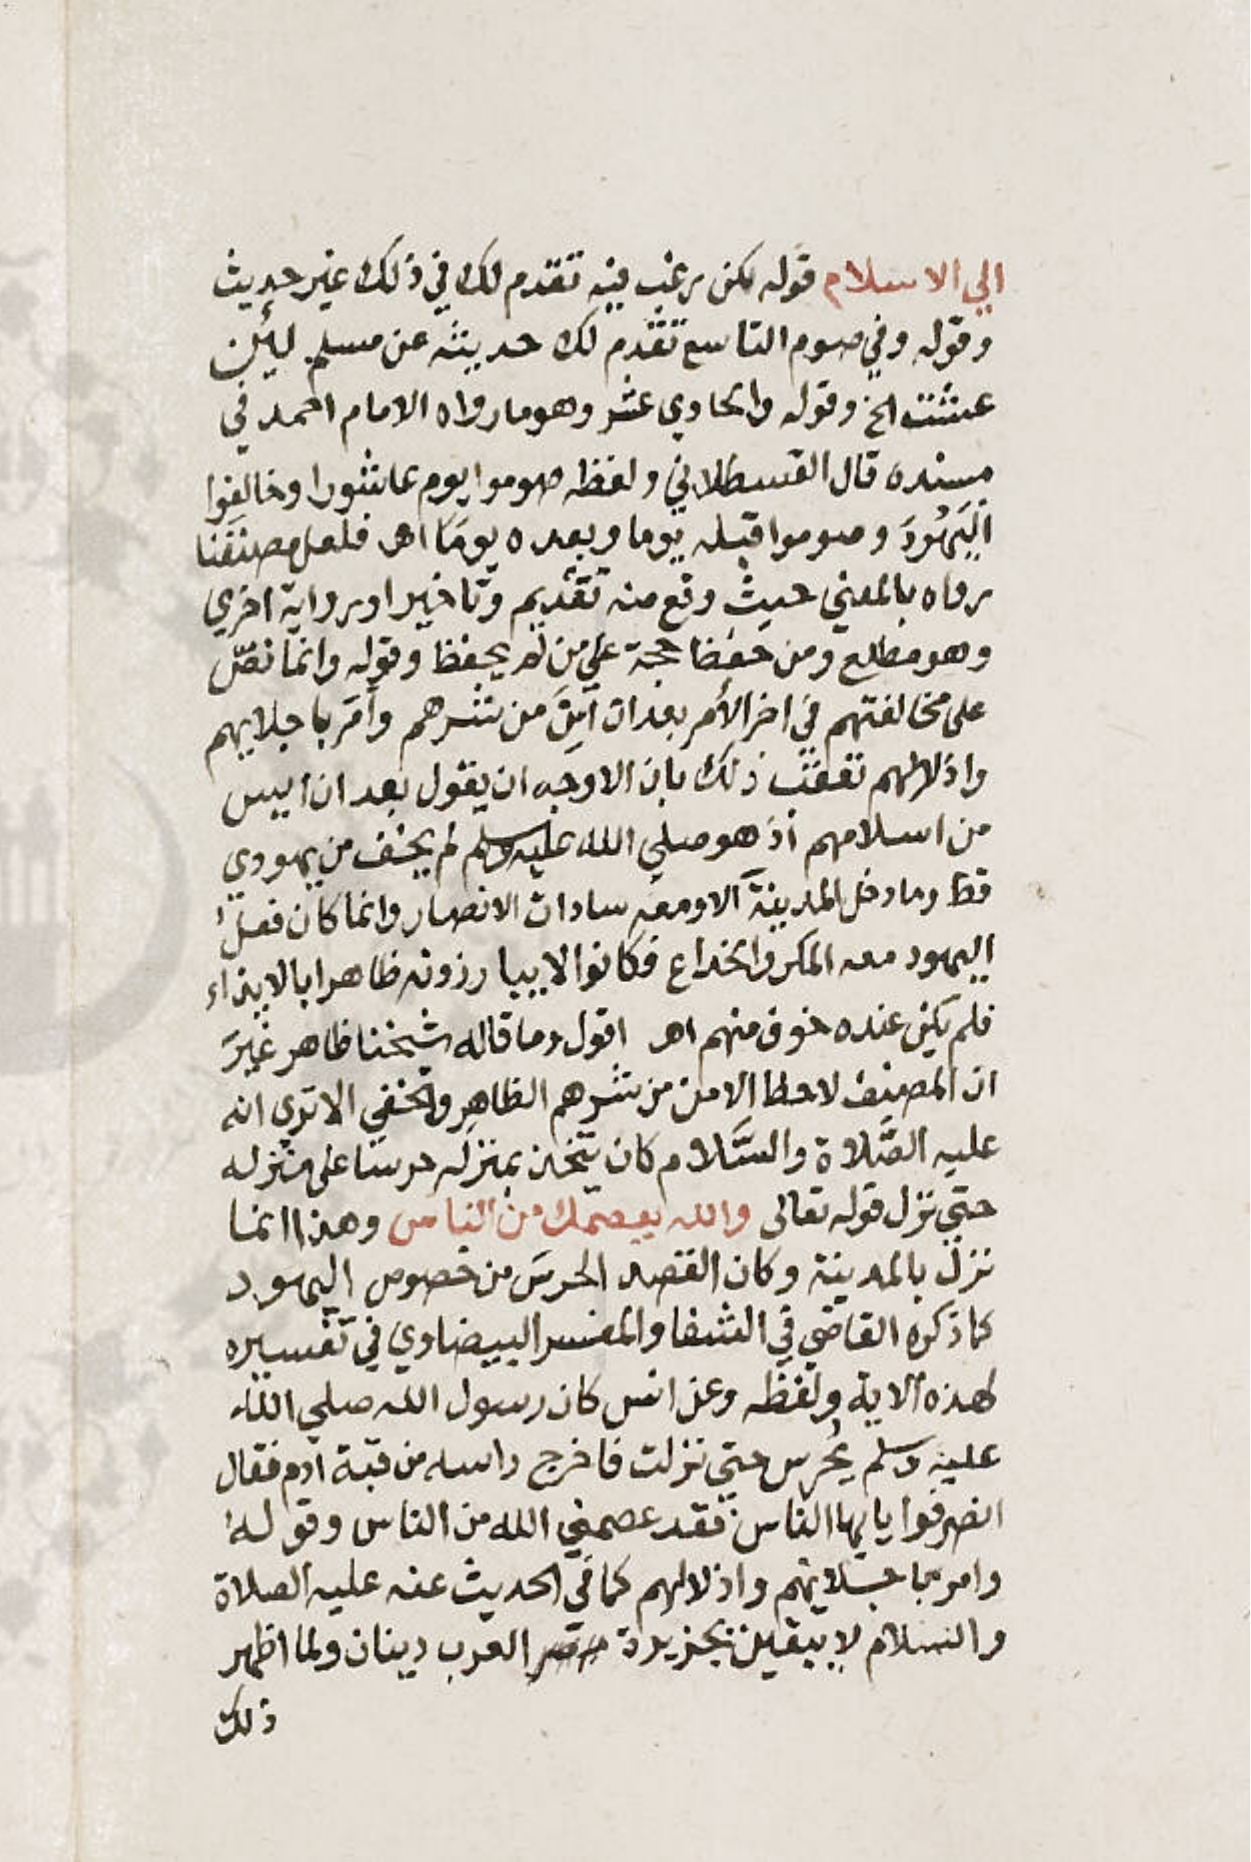 الي الاسلام قوله لكن رغب فيه تقدم لك في ذلك غير حديث
وقوله وفي صوم التاسع تقدم لك حديثه عن مسلم ليئن
عشت الخ وقوله والحادي عشر وهو ما رواه الامام احمد في
مسنده قال القسطلاني ولفظه صوموا يوم عاشورا وخالفوا
اليَهُودَ وصوموا قبله يوما وبعده يومًا اهـ فلعل مصنفنا
رواه بالمعني حيث وقع منه تقديم وتاخير او برواية اخري
وهو مطلع ومن حفظ حجة علي من لم يحفظ وقوله وانما نصّ
على مخالفتهم في اخر الأمر بعد ان آمِنَ من شرهم وأمَر باجلايهم
واذلالهم تعقب ذلك بان الاوجه ان يقول بعد ان ايس
من اسلامهم اذ هو صلي الله عليه وسلم لم يخف من يهودي
قط وما دخل المدينة الا ومعه سادات الانصار وانما كان فعل
اليهود معه المكر والخداع فكانوا لا يبارزونه ظاهرا بالايذاء
فلم يكن عنده خوف منهم اهـ اقول وما قاله شيخنا ظاهر غيرَ
ان المصنف لاحظ الامن من شرهم الظاهرِ والخفي الا تري انه
عليه الصَّلاة والسَّلام كان يتخذ بمنزله حرسا على منزله
حتي نزل قوله تعالى والله يعصمك من الناس وهذا انما
نزل بالمدينة وكان القصد الحرسَ من خصوص اليهود
كما ذكره القاضي في الشفا والمفسر البيضاوي في تفسيره
لهذه الاية ولفظه وعن انس كان رسول الله صلي الله
عليه وسلم يُحرس حتي نزلت فاخرج راسه من قبة أدم فقال
انصرفوا يا يها الناس فقد عصمني الله من الناس وقوله
وامر باجلايهم واذلالهم كما في الحديث عنه عليه الصلاة
والسلام لا يبقين بجزيرة العرب دينان ولما اظهر
ذلك